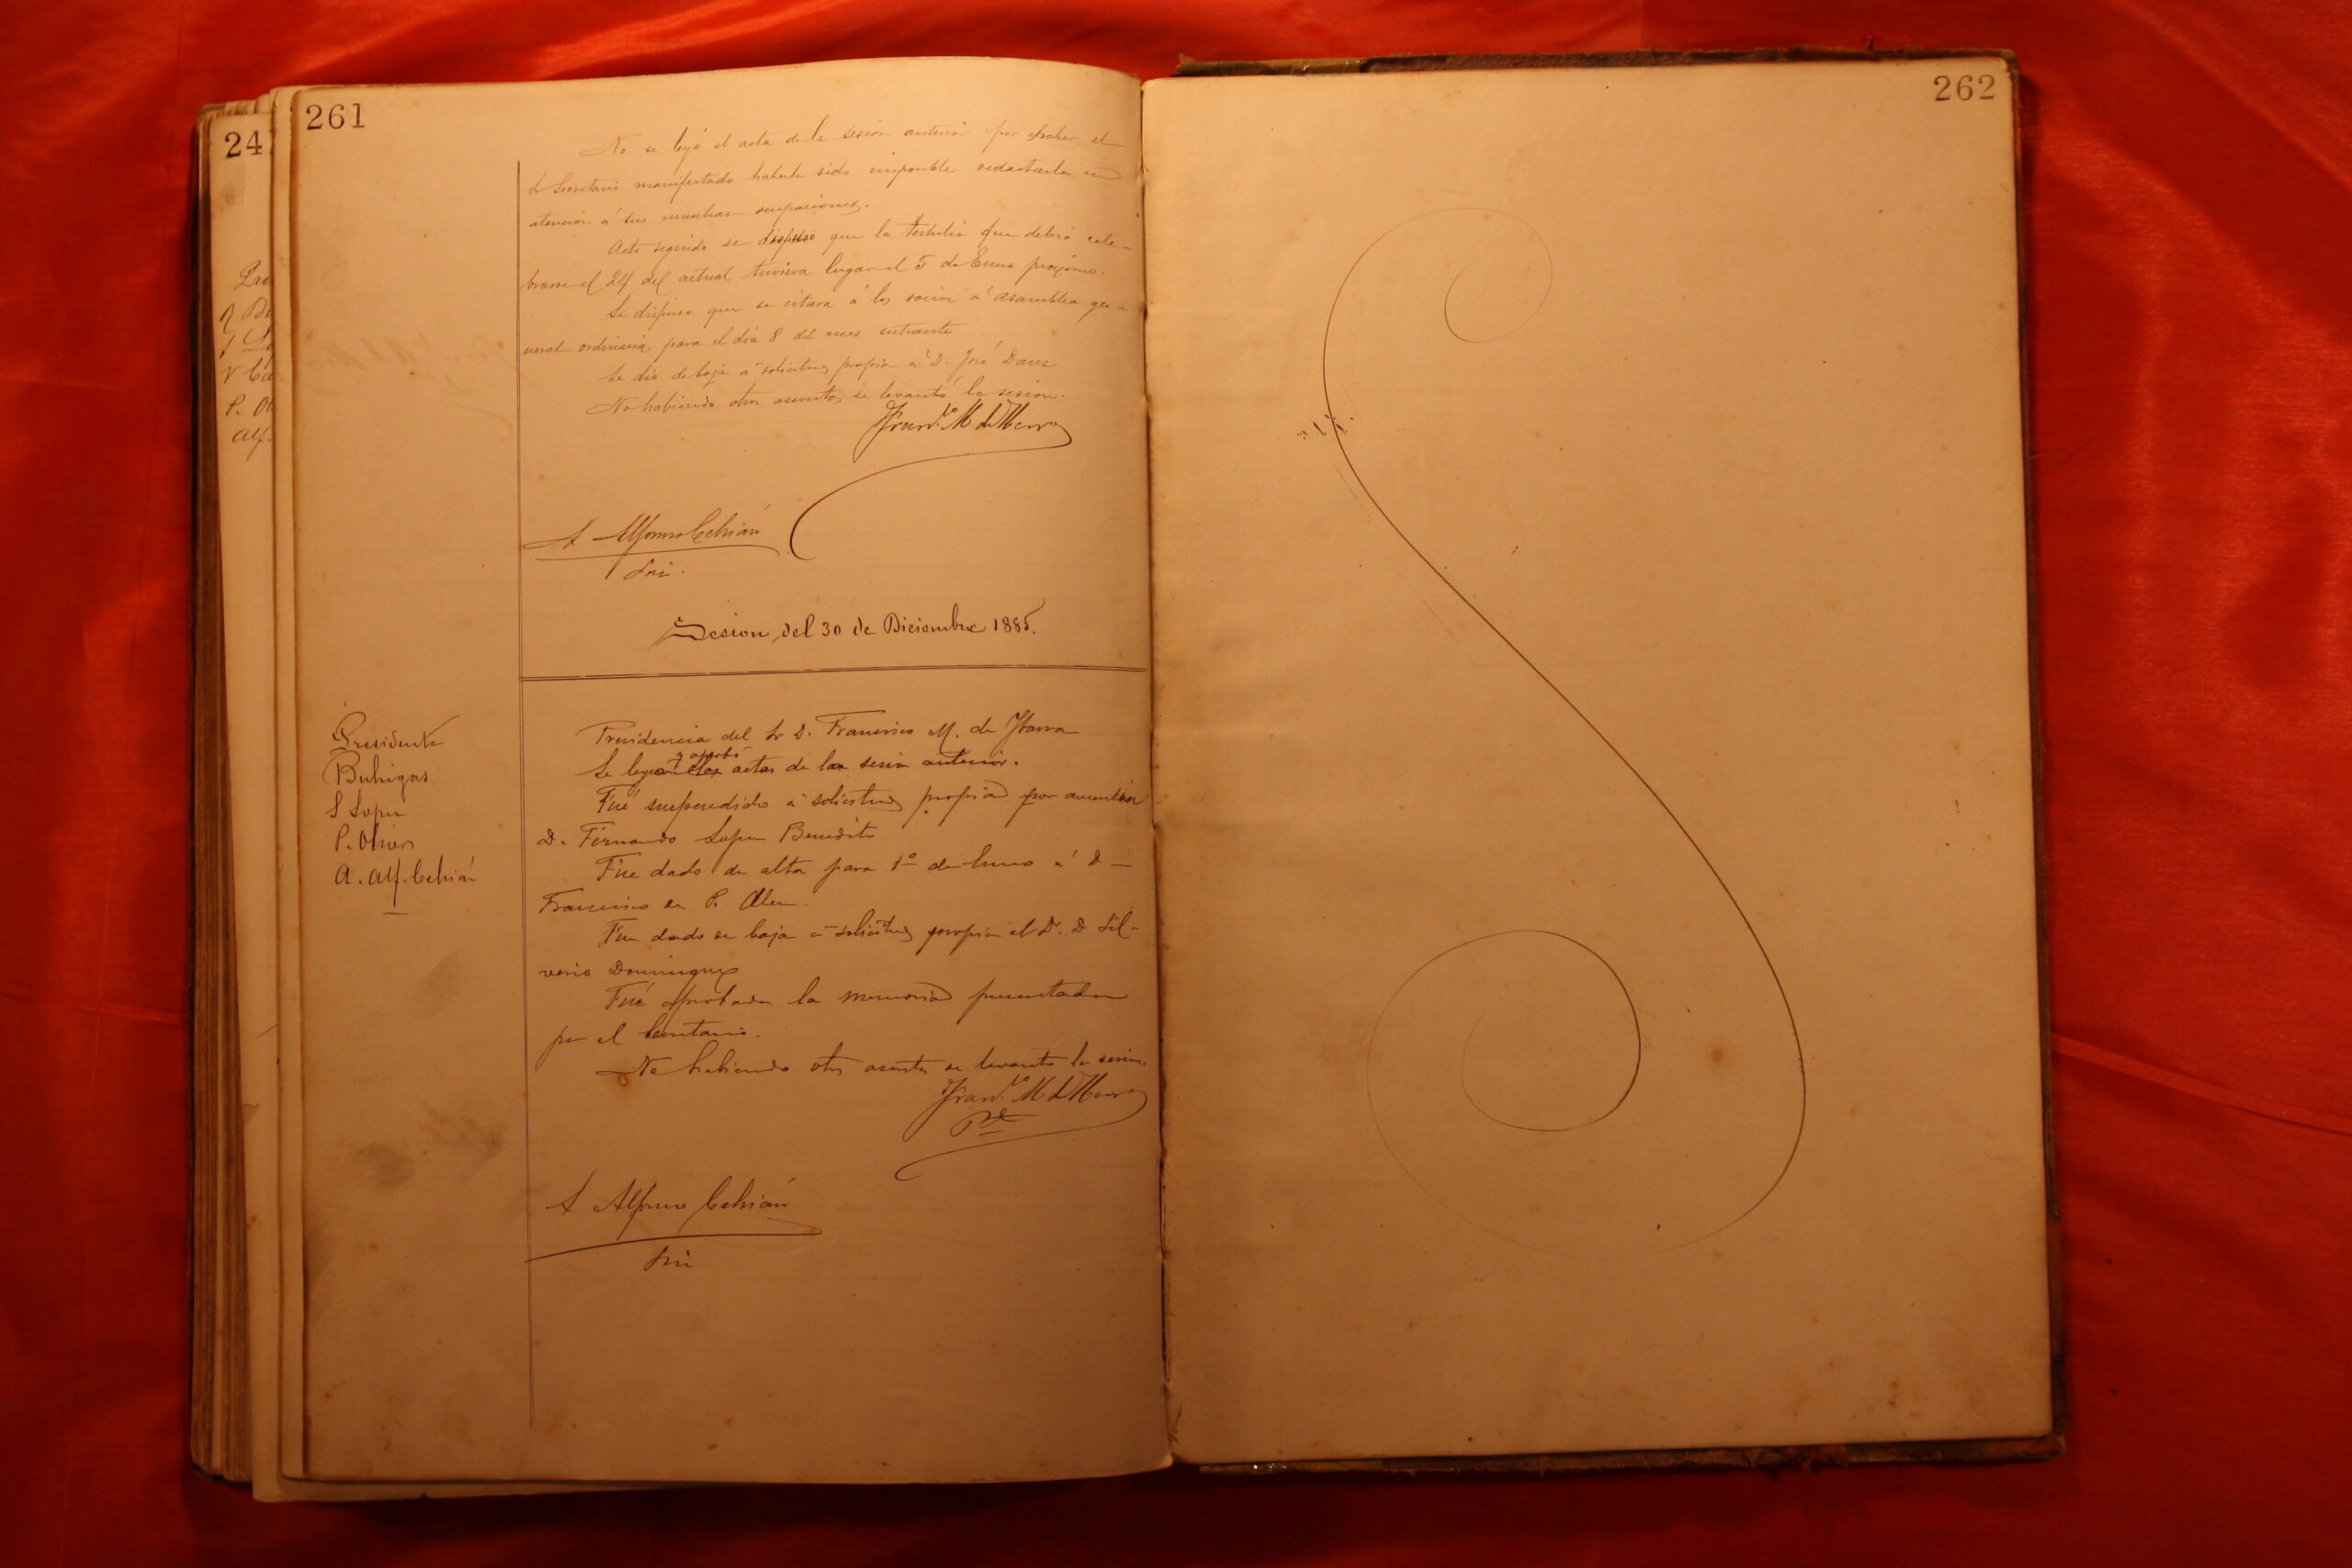 261
No se leyó el acta de la sesion anterior por haber el
Sr Secretario manifestado haberle sido imposible redactarla en
atencion á sus muchas ocupaciones.
Acto seguido se dispuso que la tertulia que debió cele-
brarse el 24 del actual tuviera lugar el 5 de Enero proximo.
Se dispuso que se citara á los socios á asamblea ge-
neral ordinaria para el dia 8 del mes entrante
Se dio de baja á solicitud propia á D. José Daus
No habiendo otros asuntos se levantó la sesion.
Franco. M de Ybarra
A Alfonso Cebrián
Srio.
Sesion del 30 de Diciembre 1885.
Presidente
Buhigas
S Lopez
P. Oliver
A. Alf. Cebrián
Presidencia del Sr D. Francisco M. de Ybarra
y aprobó
Se leyo el acta de la sesion anterior.
Fué suspendido á solicitud propia por ausentarse
D. Fernando Lopez Benedito
Fue dado de alta para 1º de Enero á D
Francisco de P. Alen.
Fue dado de baja á solicitud propia el Dr. D Sil-
verio Dominguez
Fué aprobada la memoria presentada
por el Secretario.
No habiendo otros asuntos se levantó la sesion.
Franco. M de Ybarra
Pte
A Alfonso Cebrián
Srio
262
24
Pre
P. Ol
Alf.